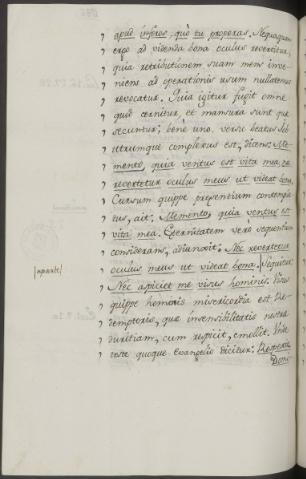 apud inferos, quò tu properas. Nequaquam
ergo ad videnda bona oculus revertitur,
quia retributionem suam mens inve-
niens ad operationis usum nullatenus
revocatur. Quia igitur fugit omne
quod cernitur, et mansura sunt quæ
secuntur; bene uno versu beatus Job
utrumque complexus est, dicens: Me-
mento, quia ventus est vita mea, &
revertetur oculus meus ut videat bona.
Cursum quippe præsentium contempla-
tus, ait: Memento, quia ventus est
vita mea. Æternitatem verò sequentium
considerans, adiunxit: Nec revertetur
oculus meus ut videat bona. Sequitur:
Nec aspiciet me visus hominis. Visus
quippe hominis misericordia est Re-
demptoris, quæ insensibilitatis nostræ
duritiam, cum respicit, emollit. Unde
teste quoque Evangelio dicitur: Respexit
Domi-